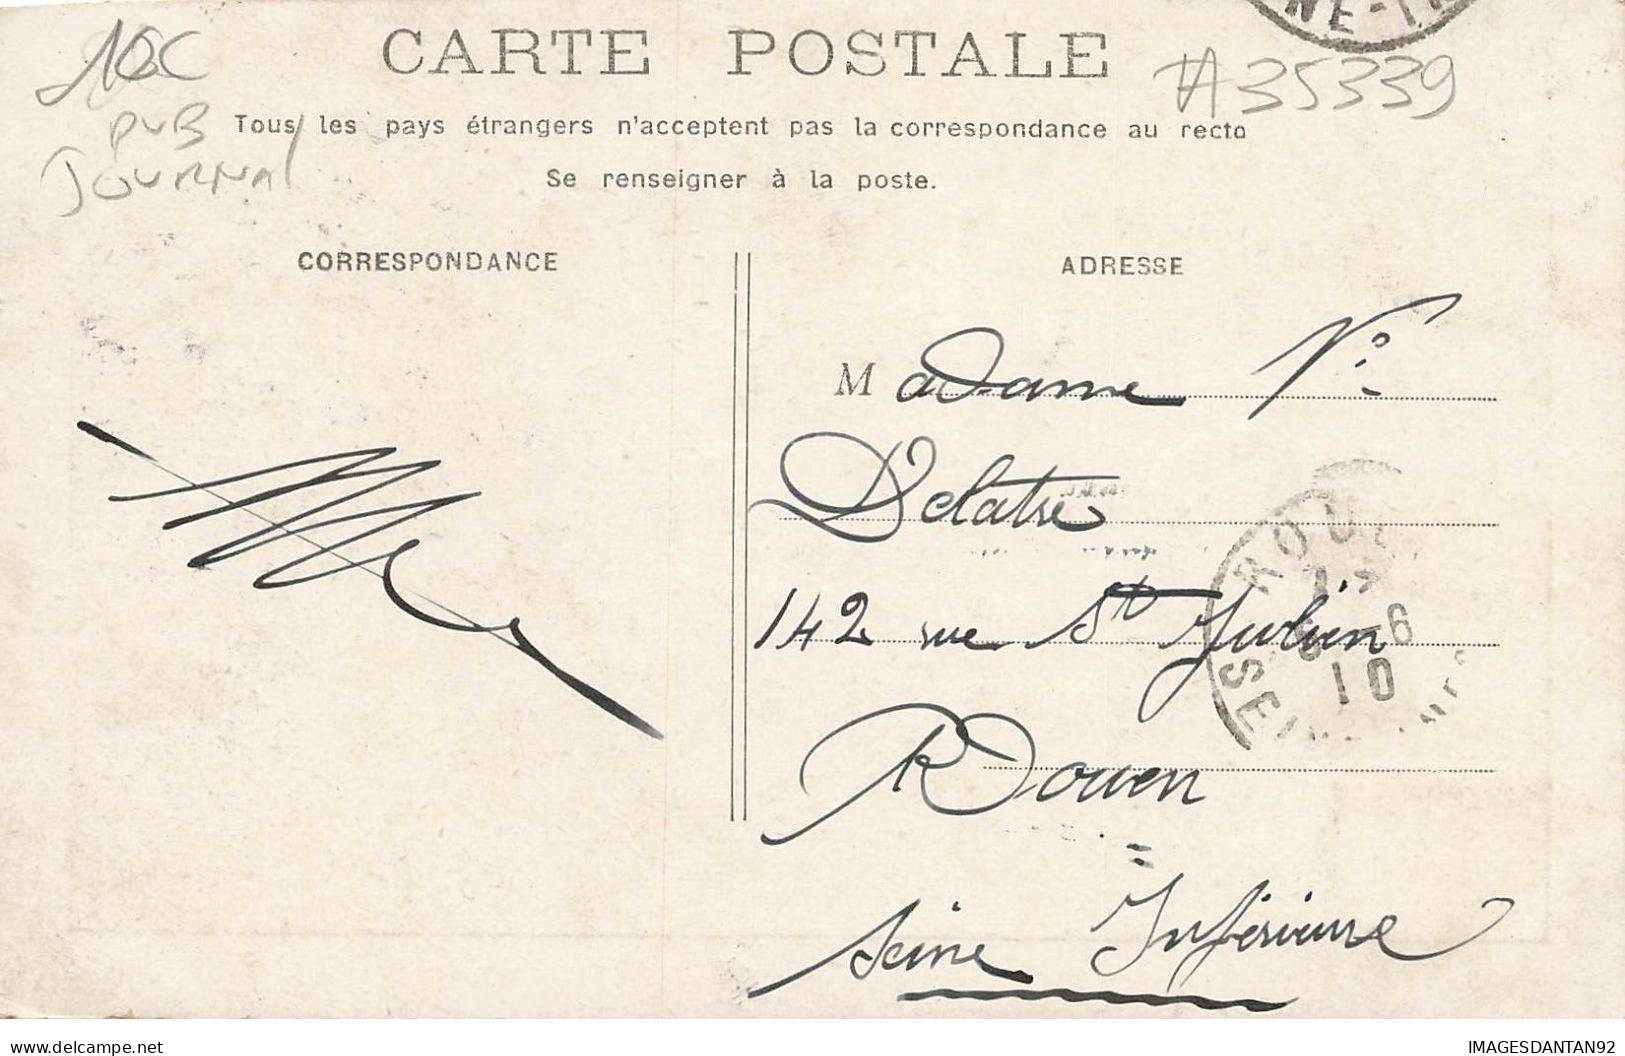 NE-IN
10C
CARTE POSTALE
#35339
PUB
JOURNAL
Tous les pays étrangers n'acceptent pas la correspondance au recto
Se renseigner à la poste.
CORRESPONDANCE
ADRESSE
Madame Ve
Delatre
142 rue St Julien
Rouen
Seine Inférieure
ROU
6
10
SEI
IMAGESDANTAN92